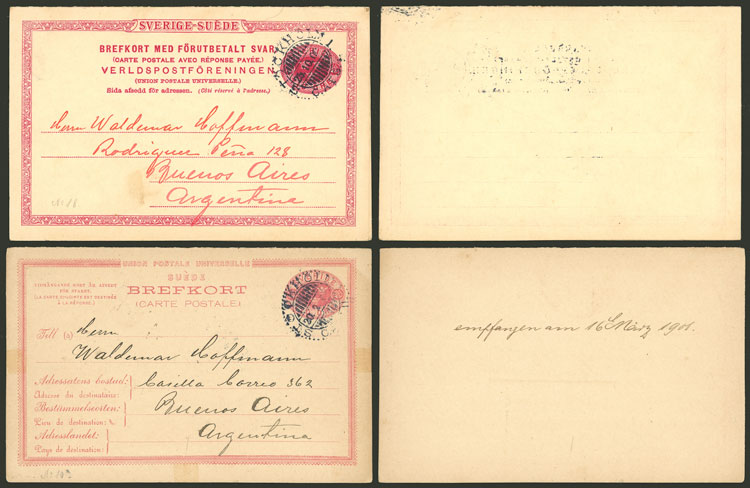 SVERIGE-SUÈDE
BREFKORT MED FÖRUTBETALT SVAR
(CARTE POSTALE AVEC RÉPONSE PAYÉE.)
VERLDSPOSTFÖRENINGEN
(UNION POSTALE UNIVERSELLE.)
Sida afsedd för adressen. (Côté réservé à l'adresse.)
Herrn Waldemar Hoffmann
Rodriguez Peña 128
Buenos Aires
Argentina
UNION POSTALE UNIVERSELLE
SUÈDE
BREFKORT
(CARTE POSTALE)
(LA CARTE CI-JOINTE EST DESTINÉE
À LA RÉPONSE.)
Till (à) Herrn
Waldemar Hoffmann
Adressatens bostad: Casilla Correo 362
Adresse du destinataire:
Bestämmelseorten: Buenos Aires
Lieu de destination:
Adresslandet: Argentina
Pays de destination:
empfangen am 16 März 1901.